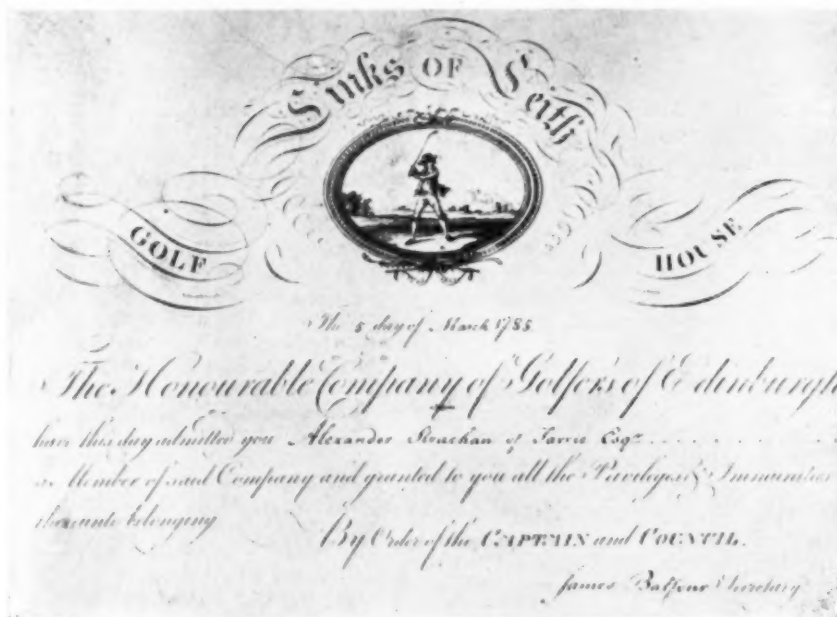 Links OF Leith
GOLF HOUSE
The 5 day of March 1785
The Honourable Company of Golfers of Edinburgh
have this day admitted you Alexander Strachan of Tarrie Esqr
a Member of said Company and granted to you all the Privileges & Immunities
thereunto belonging
By Order of the CAPTAIN and COUNCIL.
James Balfour Secretary